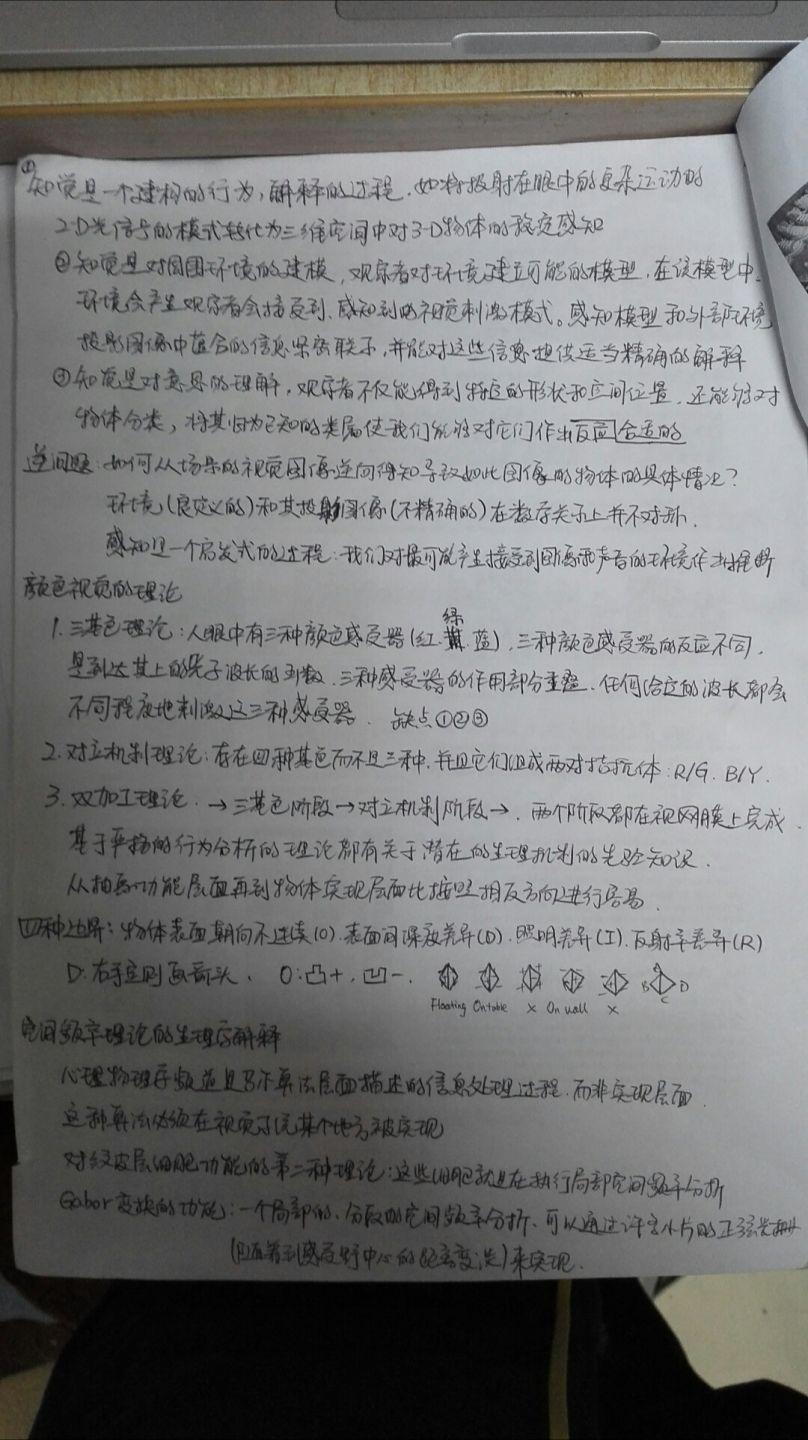 ①知觉是一个建构的行为,解释的过程.如将投射在眼中的复杂运动的
2-D光信号的模式转化为三维空间中对3-D物体的稳定感知
②知觉是对周围环境的建模,观察者对环境建立可能的模型,在该模型中
环境会产生观察者会接受到、感知到的视觉刺激模式。感知模型和外部环境
投影图像中蕴含的信息紧密联系,并能对这些信息提供适当精确的解释
③知觉是对意思的理解,观察者不仅能得到特定的形状和空间位置,还能够对
物体分类,将其归为已知的类属使我们能够对它们作出反应合适的
逆问题:如何从场景的视觉图像逆向得知导致如此图像的物体的具体情况?
环境(良定义的)和其投射图像(不精确的)在数学关系上并不对称.
感知是一个启发式的过程:我们对最可能产生接受到图像或声音的环境作出推断
颜色视觉的理论
1.三基色理论:人眼中有三种颜色感受器(红.绿.蓝),三种颜色感受器的反应不同,
是到达其上的光子波长的函数.三种感受器的作用部分重叠.任何给定的波长都会
不同程度地刺激这三种感受器. 缺点①②③
2.对立机制理论:存在四种基色而不是三种.并且它们组成两对拮抗体:R/G.B/Y.
3.双加工理论.→三基色阶段→对立机制阶段→.两个阶段都在视网膜上完成.
基于严格的行为分析的理论都有关于潜在的生理机制的先验知识.
从抽象功能层面再到物体实现层面比按照相反方向进行容易.
四种边界:物体表面朝向不连续(O).表面间深度差异(D).照明差异(I).反射率差异(R)
D:右手定则画箭头. O:凸+.凹-. B C D
Floating Ontable × On wall ×
空间频率理论的生理学解释
心理物理学频道是另个算法层面描述的信息处理过程.而非实现层面.
这种算法必须在视觉系统某个地方被实现
对纹皮层细胞功能的第二种理论:这些细胞就是在执行局部空间频率分析
Gabor变换的功能:一个局部的、分段的空间频率分析.可以通过许多小片的正弦光栅
(随着到感受野中心的距离变淡)来实现.